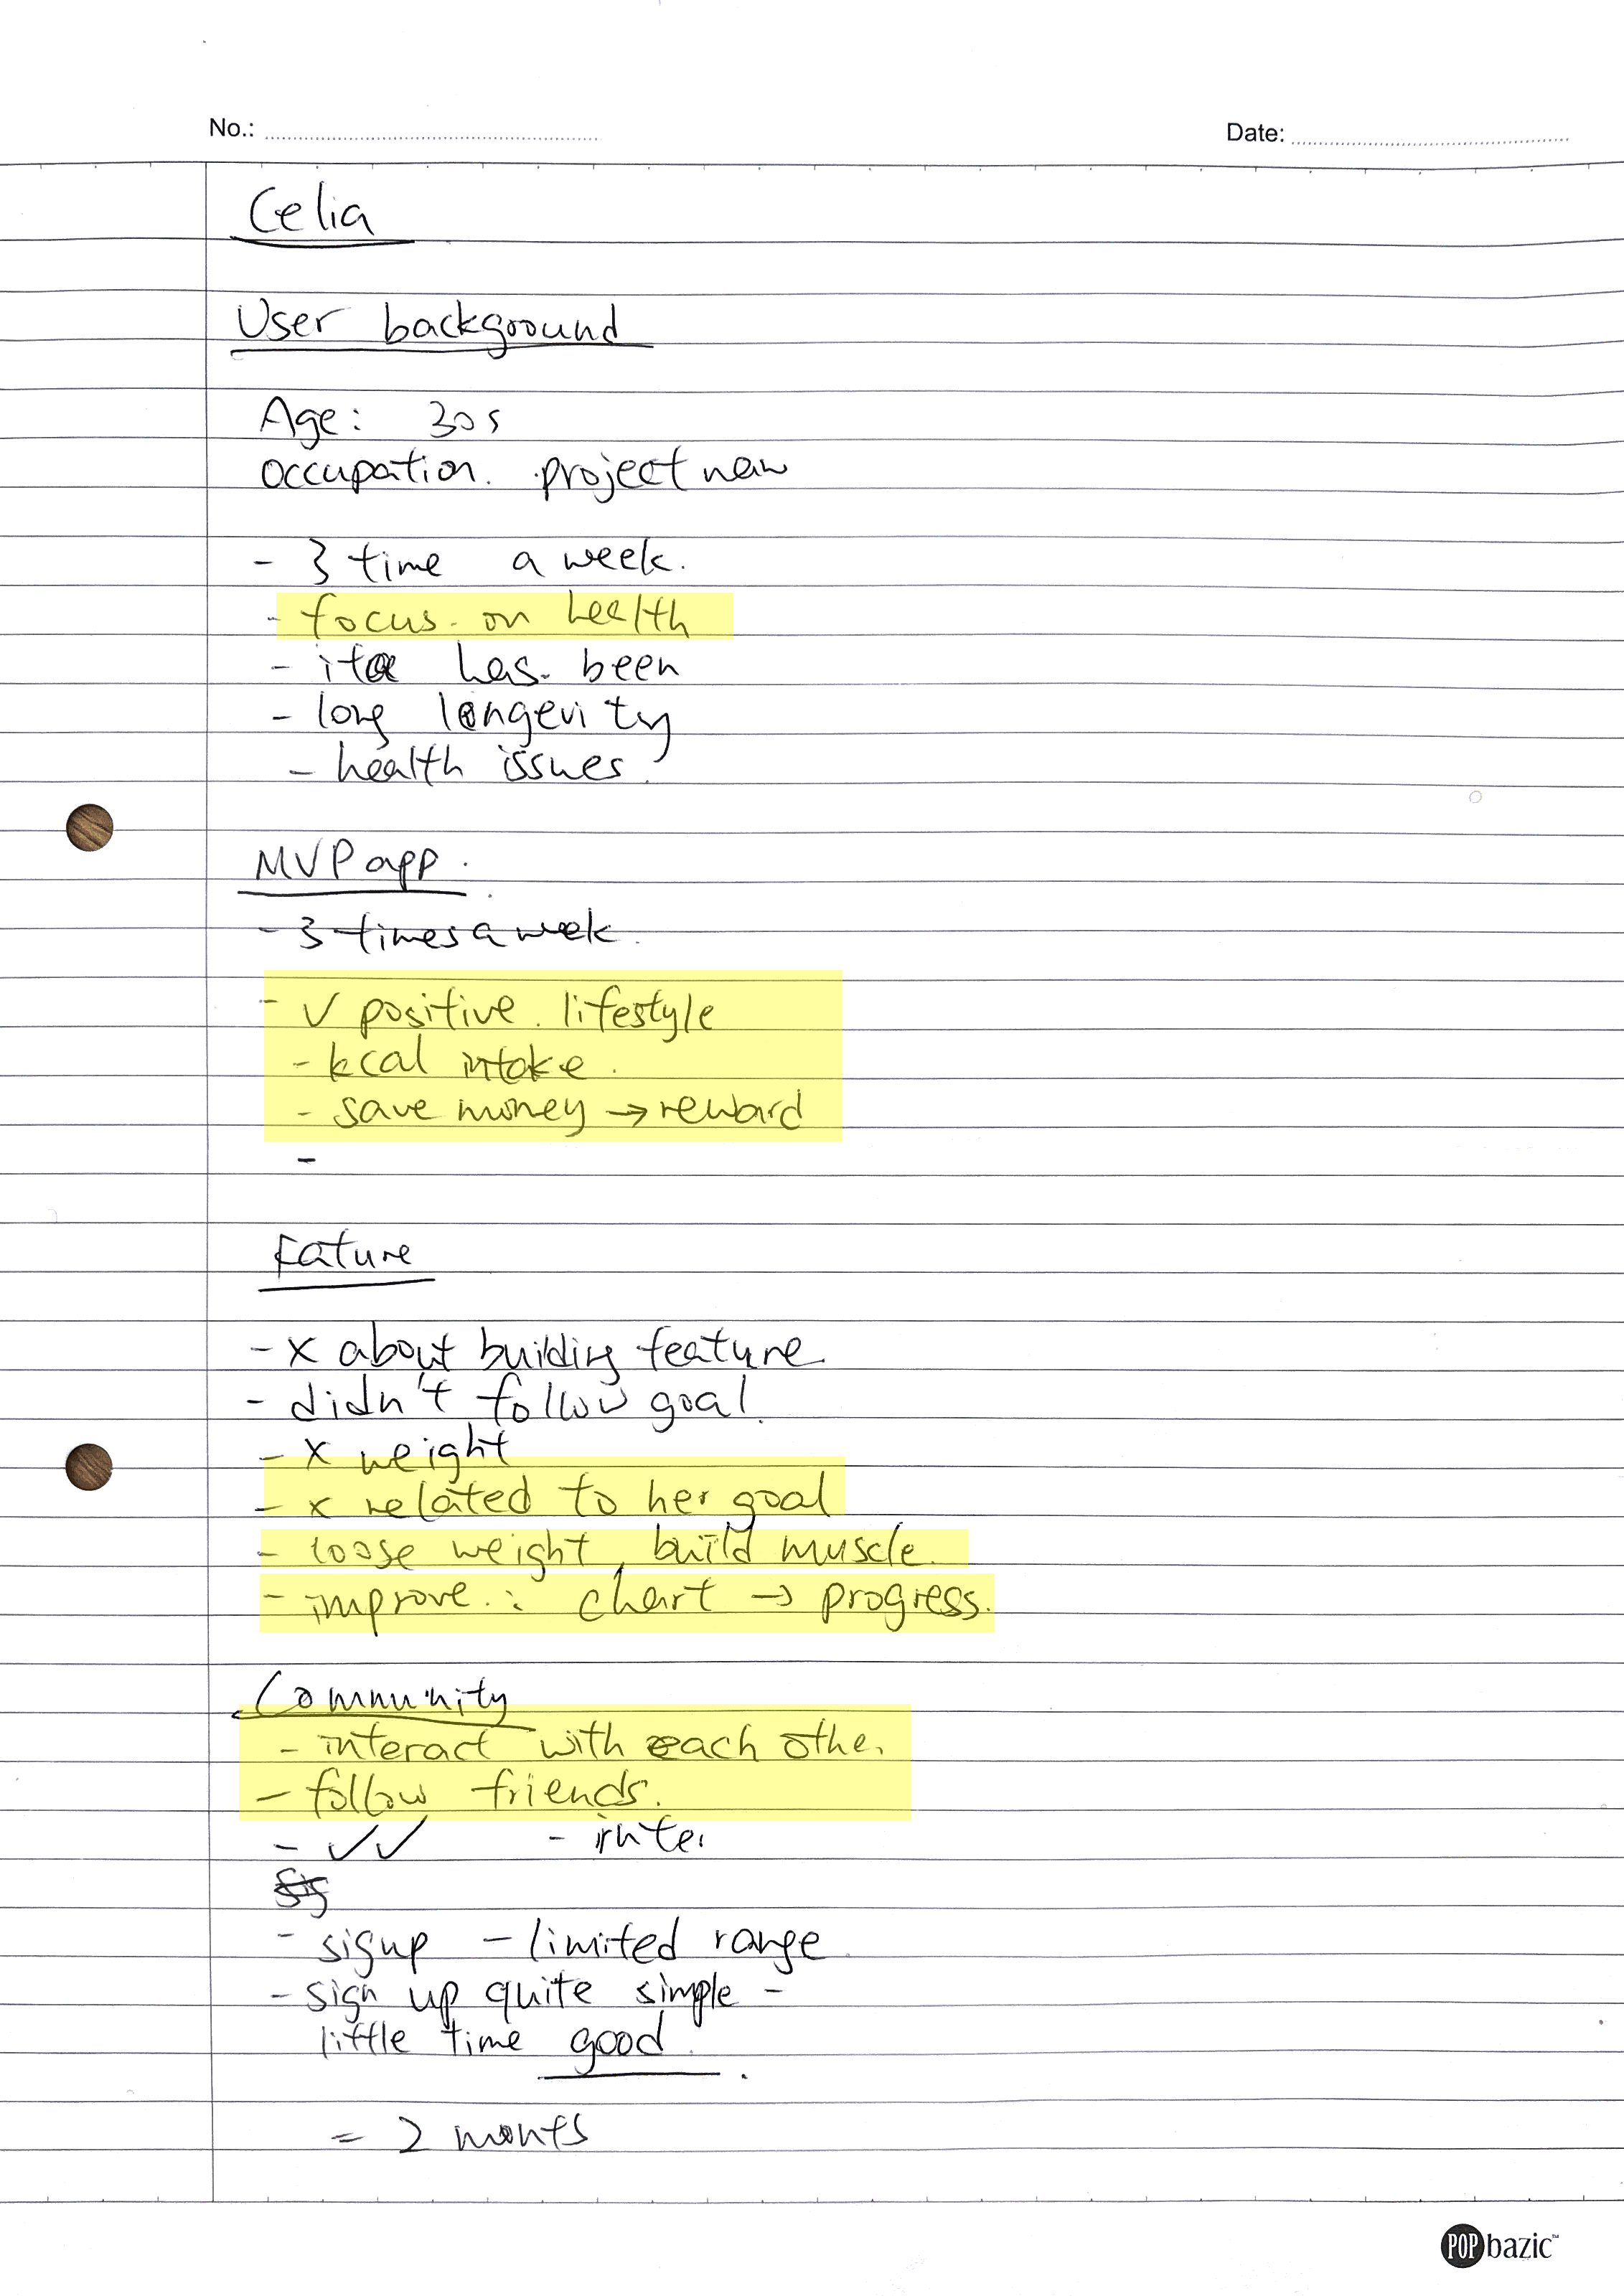 No.:
Date:
Celia
User background
Age: 30s
occupation. project new
- 3 time a week.
- focus on health
- has been
- long longevity
- health issues.
MVP app.
- 3 times a week.
- ✓ positive. lifestyle
- kcal intake.
- save money → reward
-
Fature
- x about building feature
- didn't follow goal.
- x weight
- x related to her goal
- loose weight, build muscle.
- improve. : chart → progress.
Community
- interact with each othe.
- follow friends.
- ✓✓ - inte.
- signup - limited range
- sign up quite simple -
little time good.
= 2 monts
POP bazic™